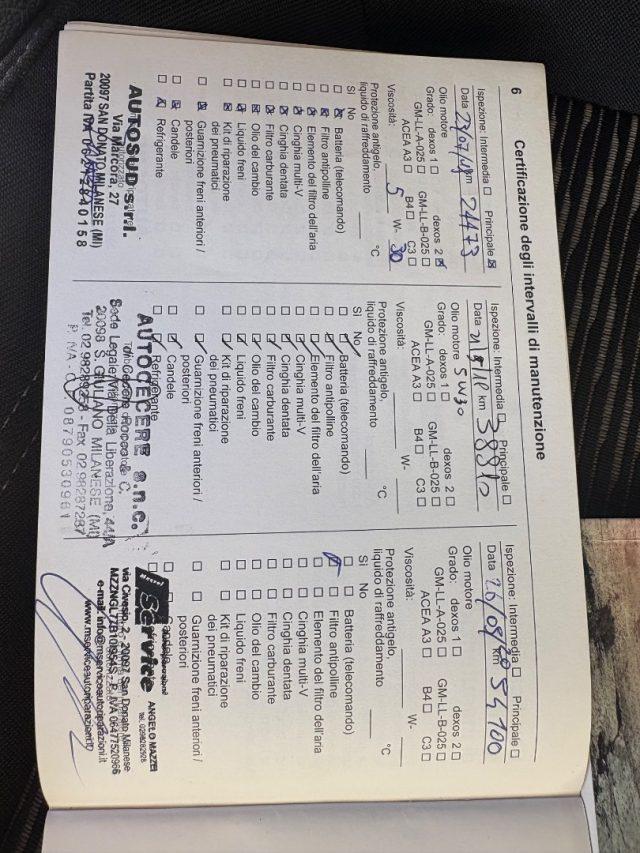 6
Certificazione degli intervalli di manutenzione
Ispezione: Intermedia ☐ Principale ☒
Data 23/07/14 km 24473
Olio motore
Grado: dexos 1 ☐ dexos 2 ☒
GM-LL-A-025 ☐ GM-LL-B-025 ☐
ACEA A3 ☐ B4 ☐ C3 ☐
Viscosità: 5 W- 30
Protezione antigelo,
liquido di raffreddamento °C
SI No
Batteria (telecomando)
Filtro antipolline
Elemento del filtro dell'aria
Cinghia multi-V
Cinghia dentata
Filtro carburante
Olio del cambio
Liquido freni
Kit di riparazione
dei pneumatici
Guarnizione freni anteriori /
posteriori
Candele
Refrigerante
AUTOSUD s.r.l.
Via Marcora, 27
20097 SAN DONATO MILANESE (MI)
Ispezione: Intermedia ☐ Principale ☐
Data km 38810
Olio motore 5W30
Grado: dexos 1 ☐ dexos 2 ☐
GM-LL-A-025 ☐ GM-LL-B-025 ☐
ACEA A3 ☐ B4 ☐ C3 ☐
Viscosità: W-
Protezione antigelo,
liquido di raffreddamento °C
SI No
Batteria (telecomando)
Filtro antipolline
Elemento del filtro dell'aria
Cinghia multi-V
Cinghia dentata
Filtro carburante
Olio del cambio
Liquido freni
Kit di riparazione
dei pneumatici
Guarnizione freni anteriori /
posteriori
Candele
Refrigerante
AUTOCECERE s.n.c.
Sede Legale: Via Della Liberazione, 44/A
20098 S. GIULIANO MILANESE (MI)
P. IVA 08790530961
Ispezione: Intermedia ☐ Principale ☐
Data km 54100
Olio motore
Grado: dexos 1 ☐ dexos 2 ☐
GM-LL-A-025 ☐ GM-LL-B-025 ☐
ACEA A3 ☐ B4 ☐ C3 ☐
Viscosità: W-
Protezione antigelo,
liquido di raffreddamento °C
SI No
Batteria (telecomando)
Filtro antipolline
Elemento del filtro dell'aria
Cinghia multi-V
Cinghia dentata
Filtro carburante
Olio del cambio
Liquido freni
Kit di riparazione
dei pneumatici
Guarnizione freni anteriori /
posteriori
Candele
Service
ANGELO MAZZEI
via Civesio, 2 - 20097 San Donato Milanese
P. IVA 06477520966
www.mserviceautoriparazioni.it